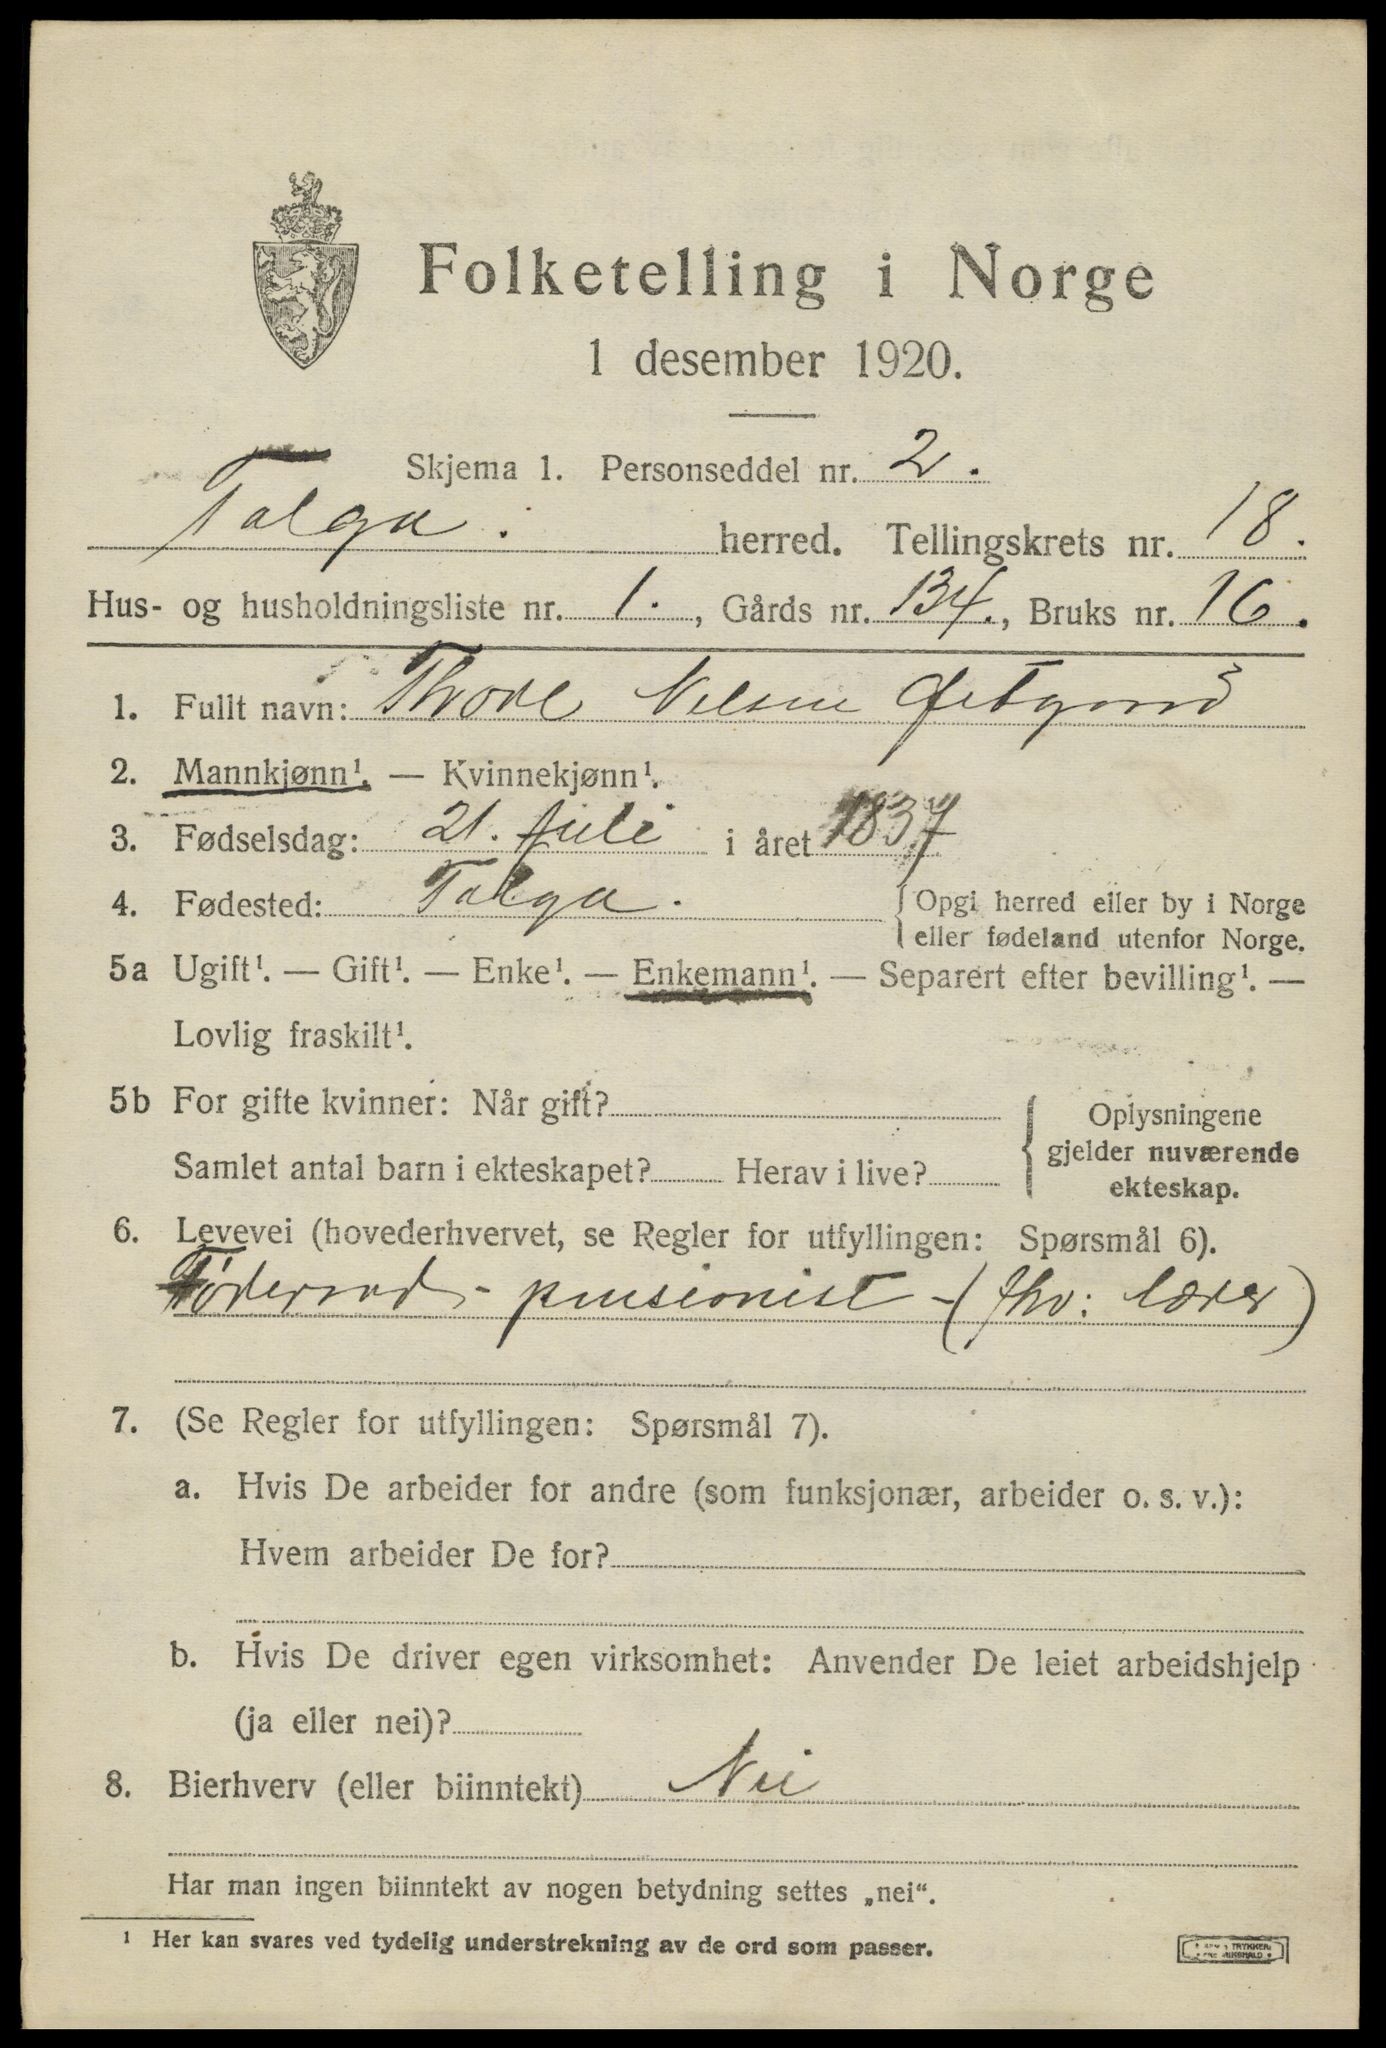 Folketelling i Norge
1 desember 1920.
Skjema 1. Personseddel nr. 2.
Tolga. herred. Tellingskrets nr. 18.
Hus- og husholdningsliste nr. 1., Gårds nr. 134., Bruks nr. 16.
1. Fullt navn: Nilsen
2. Mannkjønn¹. — Kvinnekjønn¹.
3. Fødselsdag: 21. Juli i året 1837
4. Fødested: Tolga. { Opgi herred eller by i Norge
eller fødeland utenfor Norge.
5a Ugift¹. — Gift¹. — Enke¹. — Enkemann¹. — Separert efter bevilling¹. —
Lovlig fraskilt¹.
5b For gifte kvinner: Når gift? { Oplysningene
gjelder nuværende
ekteskap.
Samlet antal barn i ekteskapet? Herav i live?
6. Levevei (hovederhvervet, se Regler for utfyllingen: Spørsmål 6).
Föderaad - pensionist - (fhv: lærer)
7. (Se Regler for utfyllingen: Spørsmål 7).
a. Hvis De arbeider for andre (som funksjonær, arbeider o. s. v.):
Hvem arbeider De for?
b. Hvis De driver egen virksomhet: Anvender De leiet arbeidshjelp
(ja eller nei)?
8. Bierhverv (eller biinntekt) Nei
Har man ingen biinntekt av nogen betydning settes „nei“.
¹ Her kan svares ved tydelig understrekning av de ord som passer.